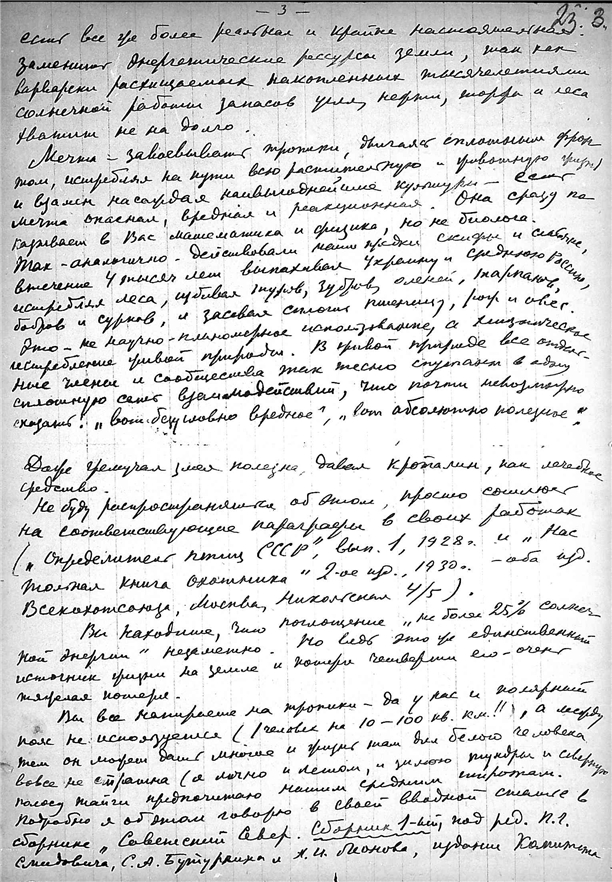 — 3 —
23. 3.
есть все же более реальная и крайне настоятельная:
заменить энергетические рессурсы земли, так как
варварски расхищаемых накопленных тысячелетиями
солнечной работы запасов угля, нефти, торфа и леса
хватит не на долго.
Мечта – завоевывать тропики, двигаясь сплошным фрон
том, истребляя на пути всю растительную и животную жизнь
и взамен насаждая наивыгоднейшие культуры – есть
мечта опасная, вредная и реакционная. Она сразу по
казывает в Вас математика и физика, но не биолога.
Так – аналогично – действовали наши предки скифы и славяне,
втечение 4 тысяч лет выпахивая Украину и среднюю Россию,
истребляя леса, избивая туров, зубров, оленей, тарпанов,
бобров и сурков, и засевая сплошь пшеницу, рожь и овес.
Это – не научно-планомерное использование, а хищническое
истребление живой природы. В живой природе все отдель-
ные члены и сообщества так тесно спутаны в одну
сплошную сеть взаимодействий, что почти невозможно
сказать: „вот безусловно вредное", „вот абсолютно полезное".
Даже гремучая змея полезна, давая кроталин, как лечебное
средство.
Не буду распространяться об этом, просто сошлюсь
на соответствующие параграфы в своих работах
(„Определитель птиц СССР", вып. 1, 1928 г. и „Нас
тольная книга охотника" 2-ое изд., 1930 г. – оба изд.
Всекохотсоюза, Москва, Никольская 4/5).
Вы находите, что поглощение „не более 25% солнеч-
ной энергии" незаметно. Но ведь это же единственный
источник жизни на земле и потеря четверти его – очень
тяжелая потеря.
Вы все напираете на тропики – да у нас и полярный
пояс не используется (1 человек на 10–100 кв. км.!!), а между
тем он может дать многое и жизнь там для белого человека
вовсе не страшна (я лично и летом, и зимою тундры и северную
полосу тайги предпочитаю нашим средним широтам.
Подробно я об этом говорю в своей вводной статье в
сборнике „Советский Север. Сборник 1-ый, под ред. П.Г.
Смидовича, С.А. Бутурлина и Н.И. Леонова, издание Комитета